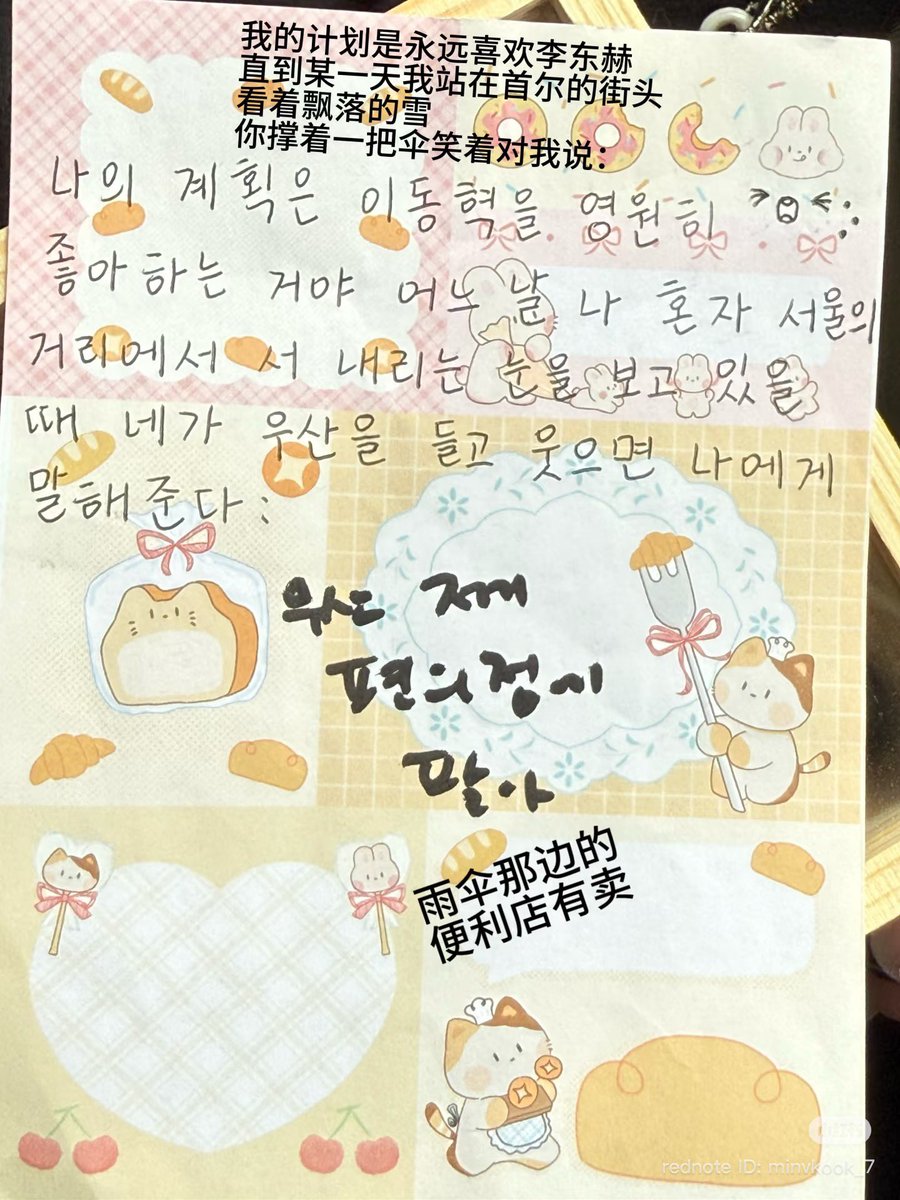 我的计划是永远喜欢李东赫
直到某一天我站在首尔的街头
看着飘落的雪
你撑着一把伞笑着对我说：
나의 계획은 이동혁을 영원히
좋아하는 거야 어느 날 나 혼자 서울의
거리에서 서 내리는 눈을 보고 있을
때 네가 우산을 들고 웃으면 나에게
말해준다:
우산 저기
편의점에
팔아
雨伞那边的
便利店有卖
rednote ID: minvkook_7